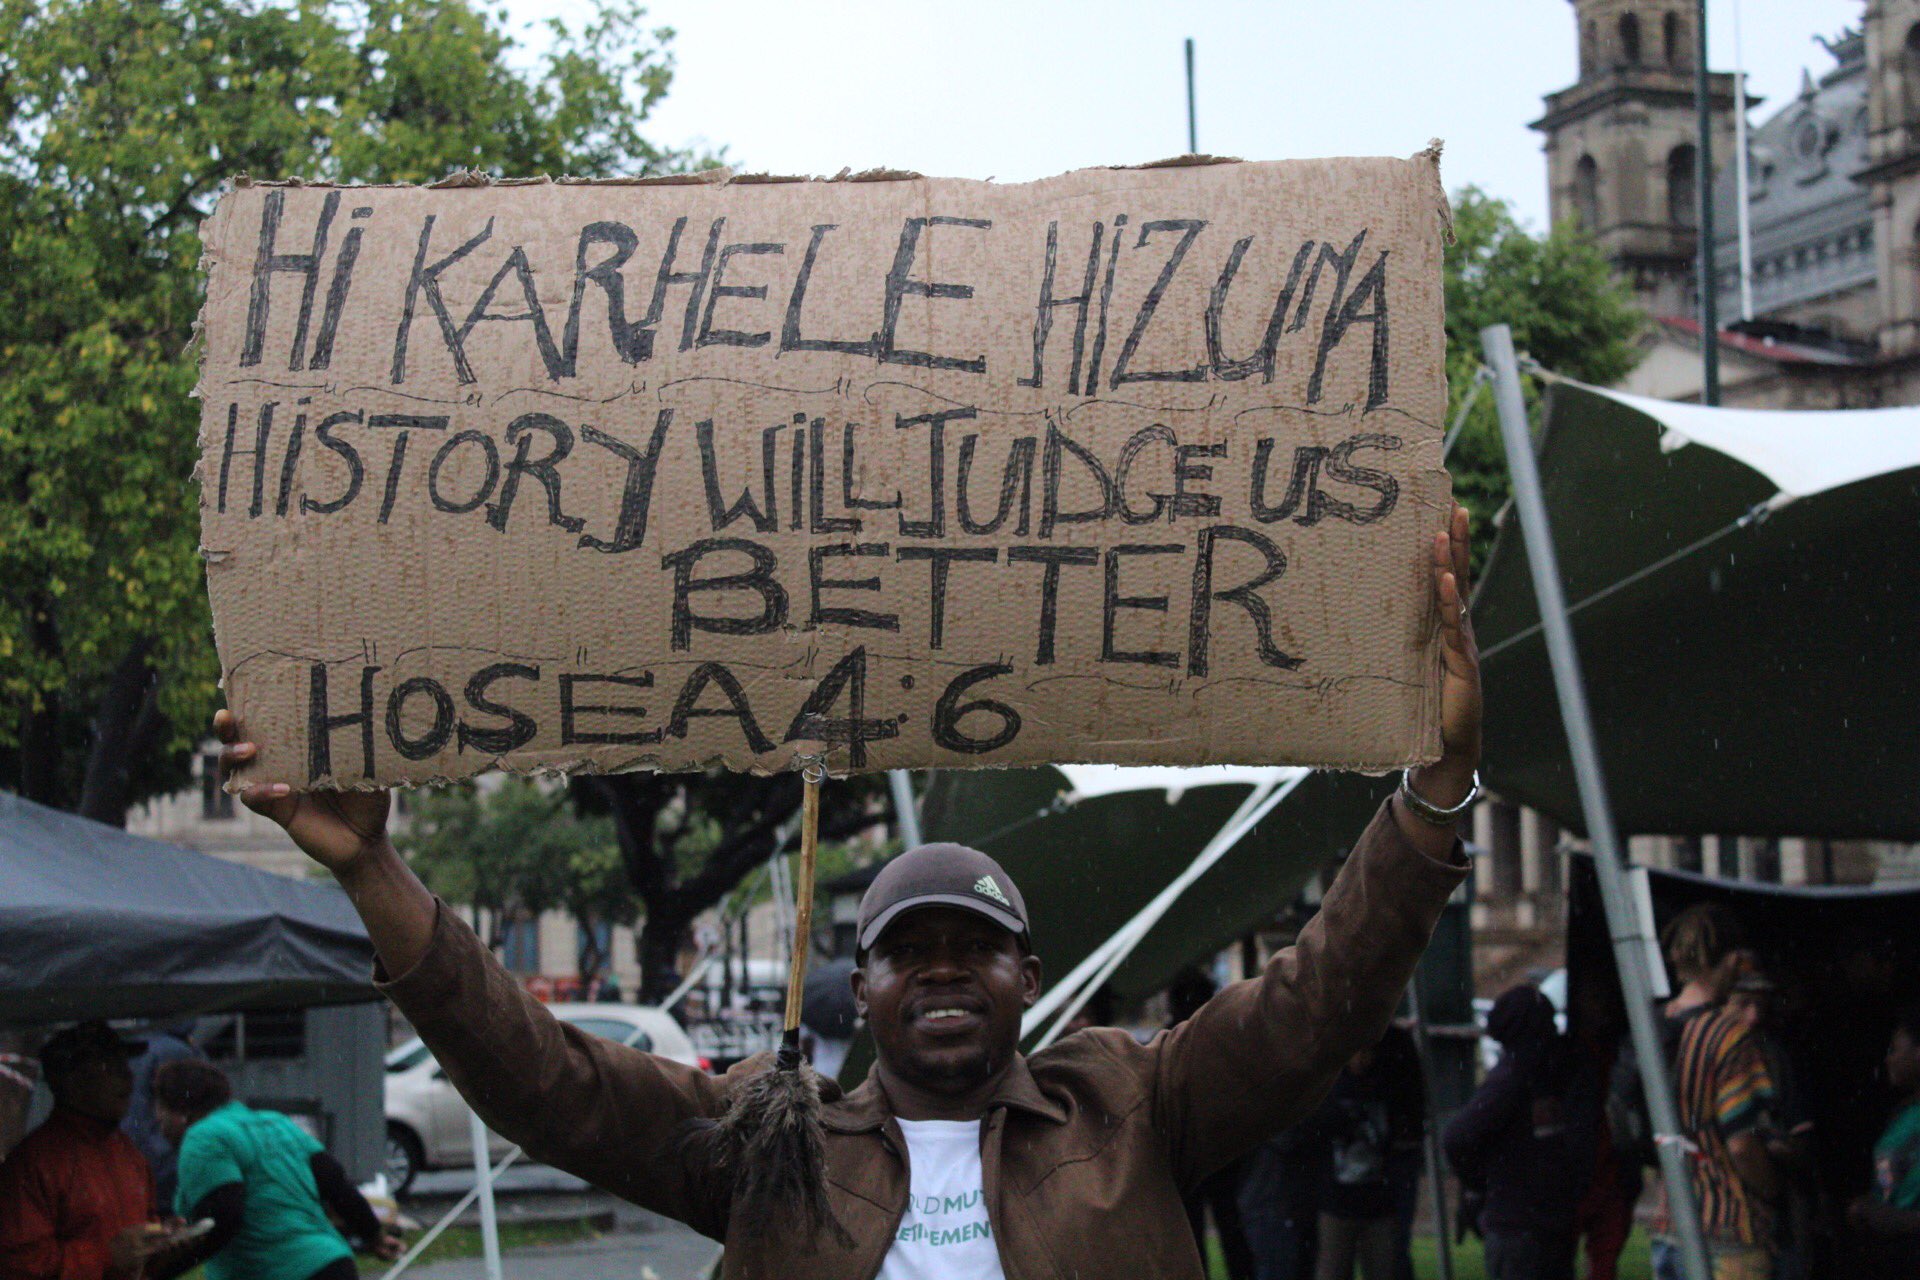 Hi KARHELE HiZUMA
HiSTORY WiLL JUDGE US
BETTER
HOSEA 4:6
adidas
OLDMUT
RETIREMENT